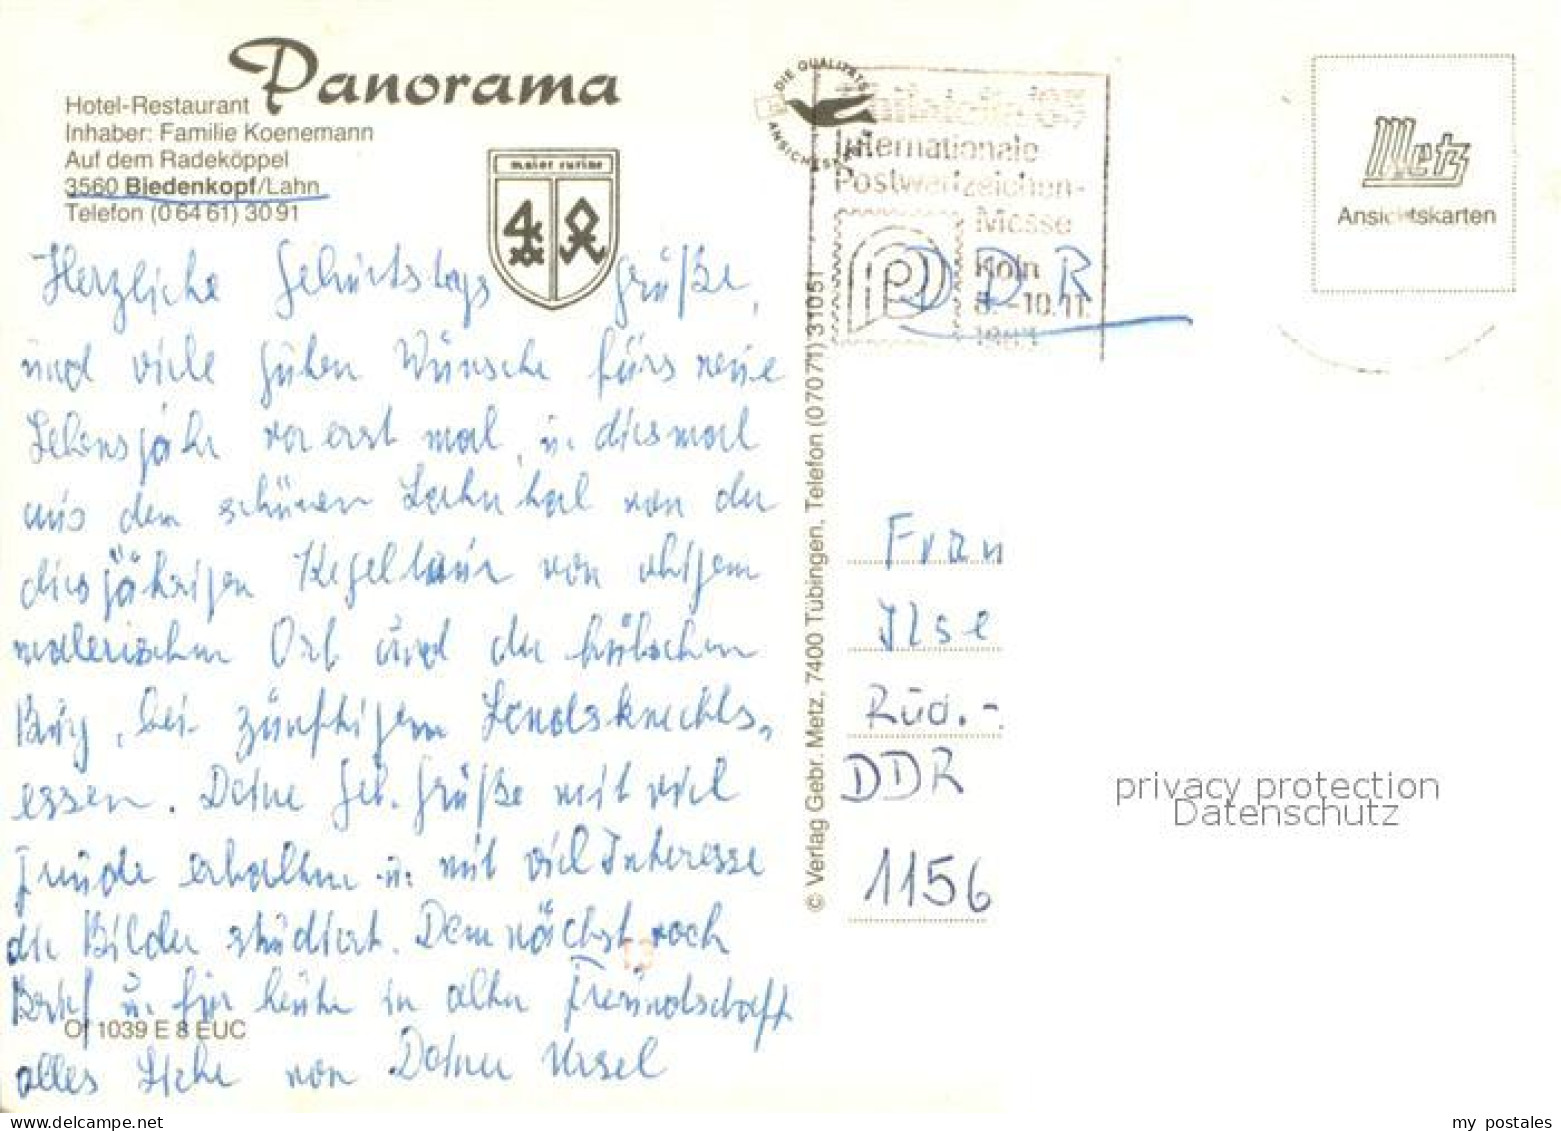 Panorama
Hotel-Restaurant
Inhaber: Familie Koenemann
Auf dem Radeköppel
3560 Biedenkopf/Lahn
Telefon (0 64 61) 30 91
Herzliche Geburtstags grüße,
und viele guten Wünsche fürs neue
Lebensjahr vorerst mal, u. diesmal
aus dem schönen Lahntal von der
diesjährigen Kegeltour von obigem
malerischen Ort und der hübschen
Burg, bei zünftigem Landsknechts-
essen. Deine Geb. Grüße mit viel
Freude erhalten u. mit viel Interesse
die Bilder studiert. Demnächst noch
Brief u. für heute in alter Freundschaft
alles Liebe von Deiner Ursel
Of 1039 E 8 EUC
© Verlag Gebr. Metz, 7400 Tübingen, Telefon (07071) 31051
DIE QUALITÄTS
ANSICHTSKARTE
Internationale
Postwertzeichen-
Messe
Köln
-10.11.
DDR
Metz
Ansichtskarten
Frau
Ilse
Rüd.-
DDR
1156
privacy protection
Datenschutz
my postales